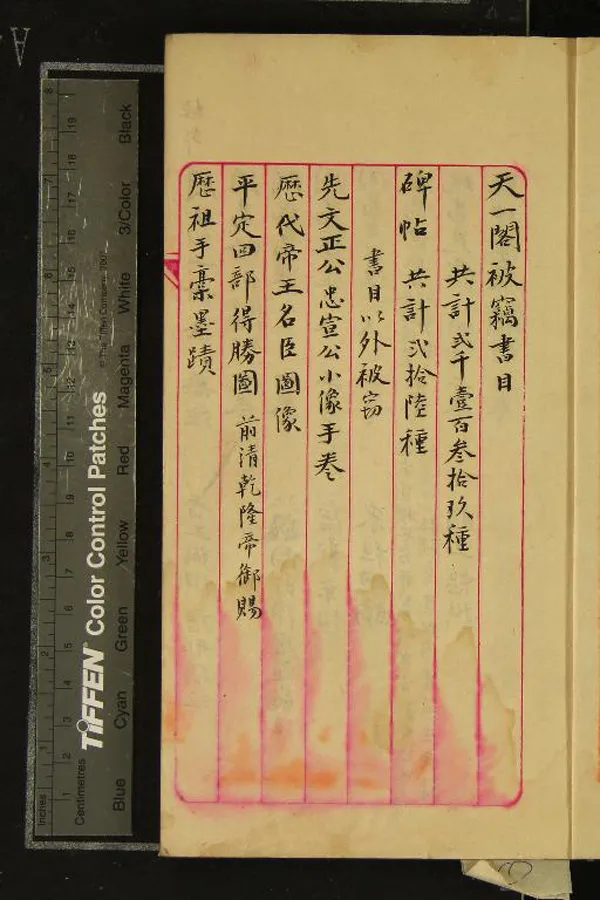 天一閣被竊書目
共計弍千壹百叁拾玖種
碑帖 共計弍拾陸種
書目以外被窃
先文正公忠宣公小像手卷
歷代帝王名臣圖像
平定回部得勝圖 前清乾隆帝御賜
歷祖手稾墨蹟
TIFFEN Color Control Patches
© The Tiffen Company, 2007
Inches
1 2 3 4 5 6 7 8
Centimetres
1 2 3 4 5 6 7 8 9 10 11 12 13 14 15 16 17 18 19
Blue Cyan Green Yellow Red Magenta White 3/Color Black
A